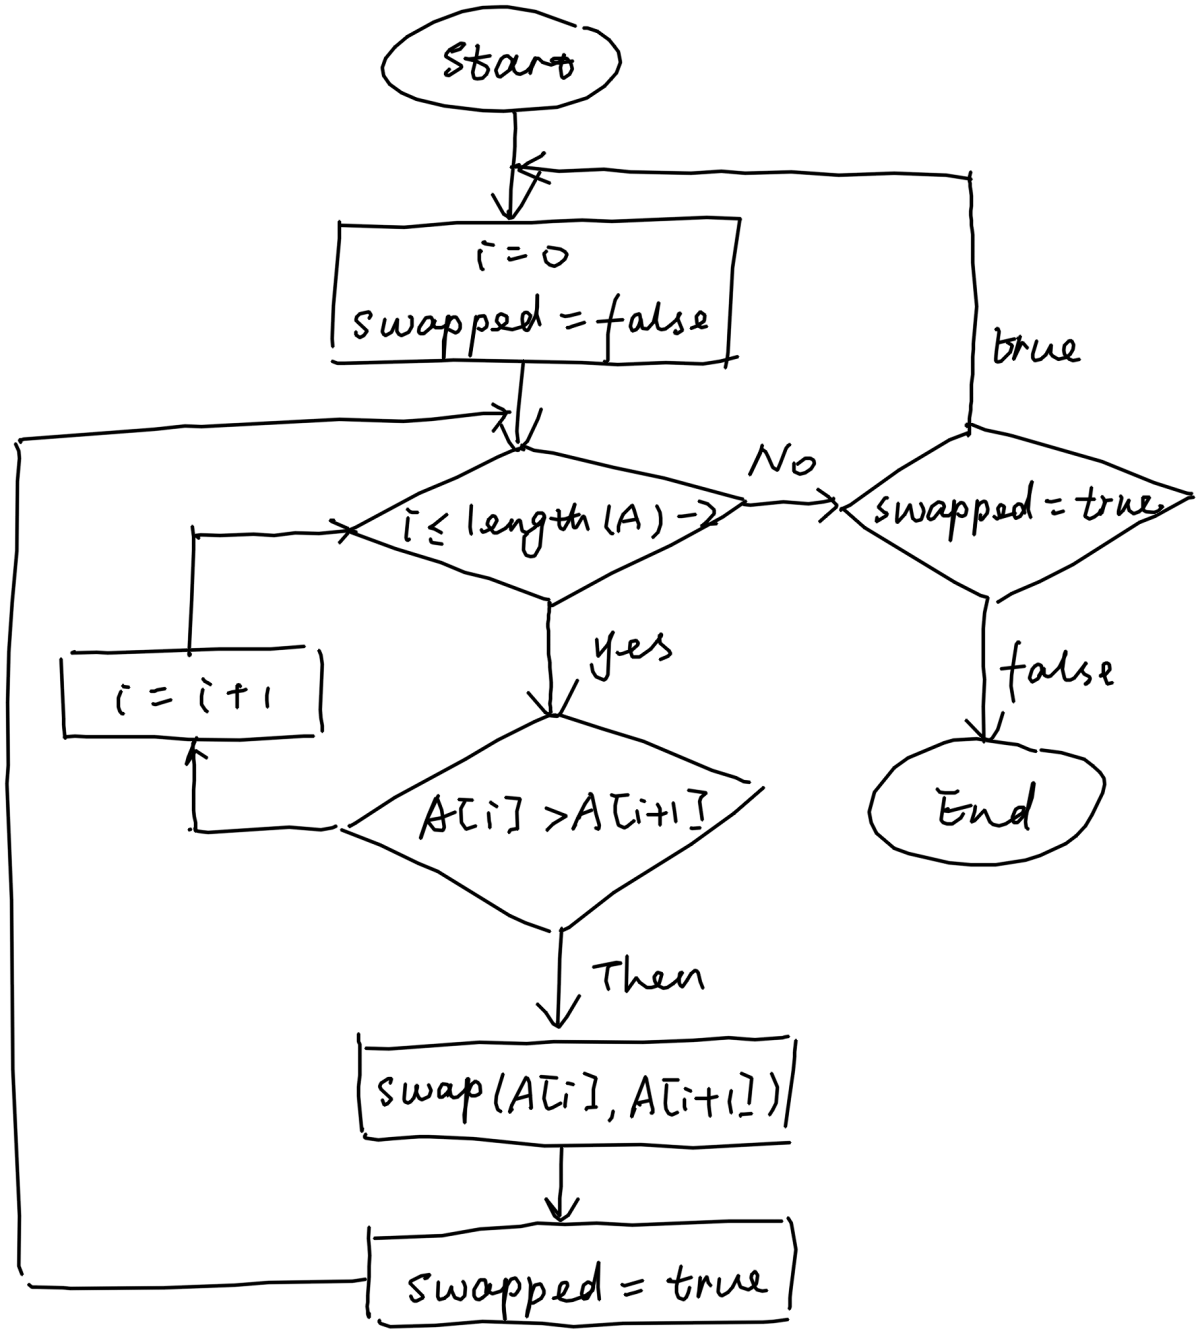 Start
i = 0
swapped = false
true
i ≤ length(A) - 2
No
swapped = true
yes
false
i = i + 1
A[i] > A[i+1]
End
Then
swap(A[i], A[i+1])
swapped = true